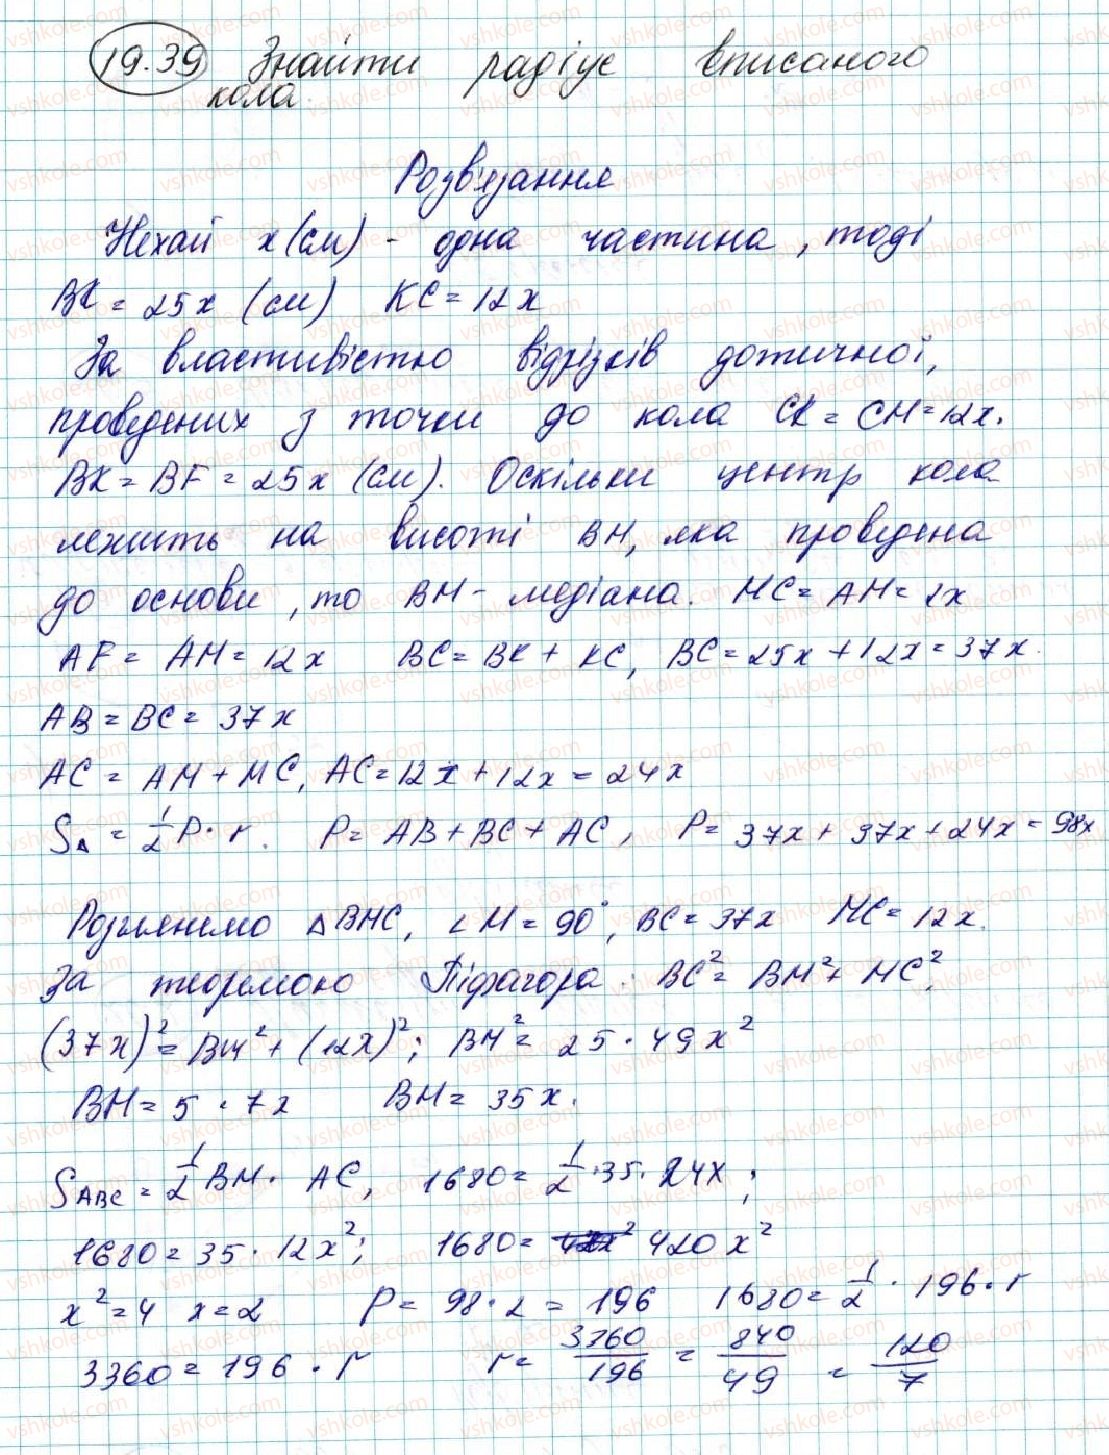 19.39 Знайти радіус вписаного
кола.
Розв'язання
Нехай x(см) - одна частина, тоді
BK = 25x (см) KC = 12x
За властивістю відрізків дотичної,
проведених з точки до кола CK = CM = 12x.
BK = BF = 25x (см). Оскільки центр кола
лежить на висоті BM, яка проведена
до основи, то BM - медіана. MC = AM = 12x
AF = AM = 12x BC = BK + KC, BC = 25x + 12x = 37x.
AB = BC = 37x
AC = AM + MC, AC = 12x + 12x = 24x
S△ = 1/2 P · r. P = AB + BC + AC, P = 37x + 37x + 24x = 98x
Розглянемо △BMC, ∠M = 90°, BC = 37x MC = 12x.
За теоремою Піфагора. BC² = BM² + MC².
(37x)² = BM² + (12x)²; BM² = 25 · 49x²
BM = 5 · 7x BM = 35x.
S ABC = 1/2 BM · AC, 1680 = 1/2 · 35 · 24x;
1680 = 35 · 12x²; 1680 = 420x²
x² = 4 x = 2 P = 98 · 2 = 196 1680 = 1/2 · 196 · r
3360 = 196 · r r = 3360/196 = 840/49 = 120/7